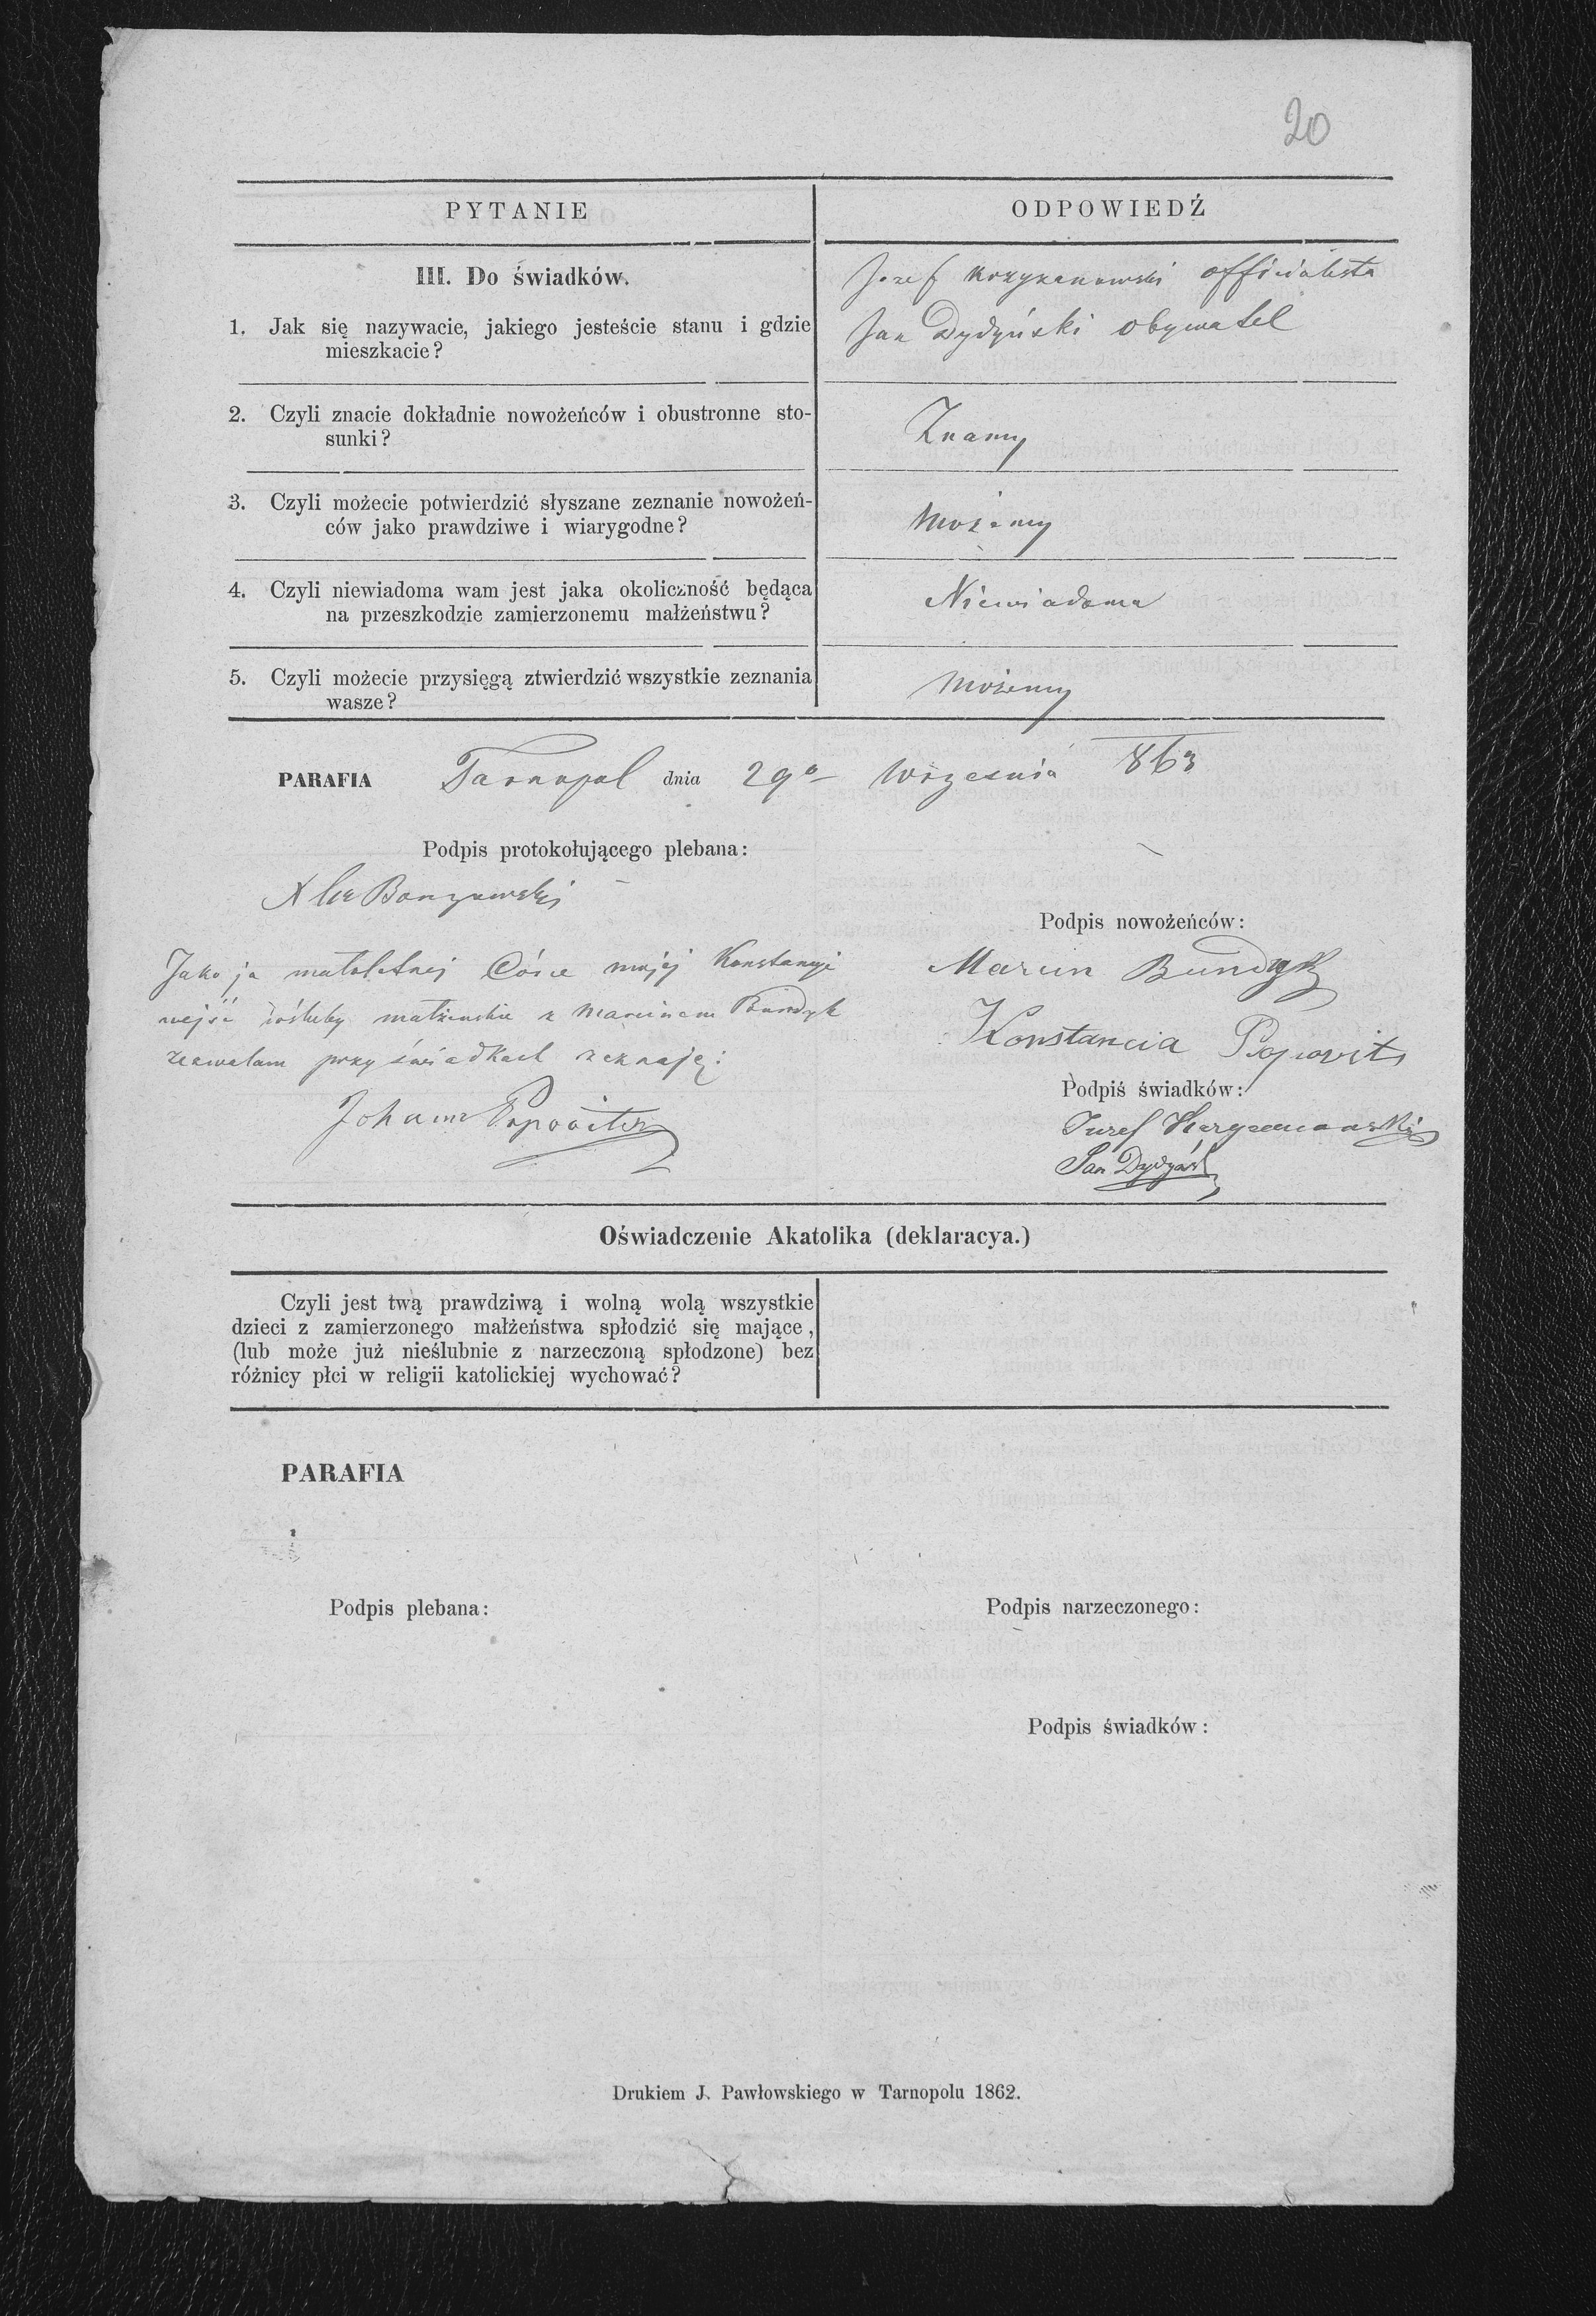 20
PYTANIE
ODPOWIEDŹ
III. Do świadków.
1. Jak się nazywacie, jakiego jesteście stanu i gdzie
mieszkacie?
Jozef Krzyżanowski officialista
Jan Dydyński obywatel
2. Czyli znacie dokładnie nowożeńców i obustronne sto-
sunki?
Znamy
3. Czyli możecie potwierdzić słyszane zeznanie nowożeń-
ców jako prawdziwe i wiarygodne?
Możemy
4. Czyli niewiadoma wam jest jaka okoliczność będąca
na przeszkodzie zamierzonemu małżeństwu?
Niewiadoma
5. Czyli możecie przysięgą ztwierdzić wszystkie zeznania
wasze?
Możemy
PARAFIA Tarnopol dnia 29o Września 863
Podpis protokołującego plebana:
Podpis nowożeńców:
Jako ja małoletniej Córce mojej Konstancyi
wejść w śluby małżeńskie z Marcinem Bundyk
zezwalam przy świadkach zeznaję:
Johann Popovits
Marcin Bundyk
Konstancia Popovits
Podpiś świadków:
Jozef Krzyzanowski
Jan Dydyński
Oświadczenie Akatolika (deklaracya.)
Czyli jest twą prawdziwą i wolną wolą wszystkie
dzieci z zamierzonego małżeństwa spłodzić się mające,
(lub może już nieślubnie z narzeczoną spłodzone) bez
różnicy płci w religii katolickiej wychować?
PARAFIA
Podpis plebana:
Podpis narzeczonego:
Podpis świadków:
Drukiem J. Pawłowskiego w Tarnopolu 1862.